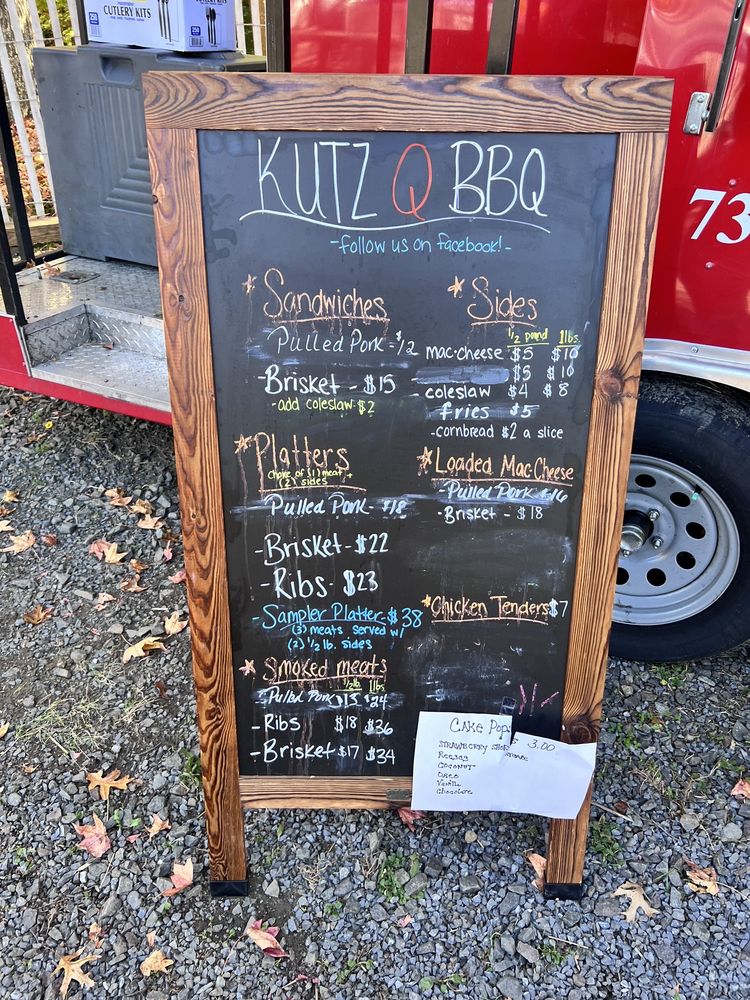 CUTLERY KITS
KUTZ Q BBQ
-follow us on facebook!-
Sandwiches
Pulled Pork-$12
-Brisket - $15
-add coleslaw-$2
Platters
choice of (1) meat +
(2) sides
Pulled Pork- $18
-Brisket-$22
-Ribs- $23
-Sampler Platter-$38
(3) meats served w/
(2) 1/2 lb. sides
Smoked meats
1/2 lb. 1 lbs
-Pulled Pork $13 $24
-Ribs $18 $36
-Brisket $17 $34
Sides
1/2 pound 1 lbs.
mac-cheese $5 $10
$5 $10
- coleslaw $4 $8
fries $5
-cornbread $2 a slice
Loaded Mac Cheese
-Pulled Pork $16
-Brisket - $18
Chicken Tenders $7
Cake Pops 3.00
Strawberry Short
Reeses
Coconut
Oreo
Vanilla
Chocolate
73